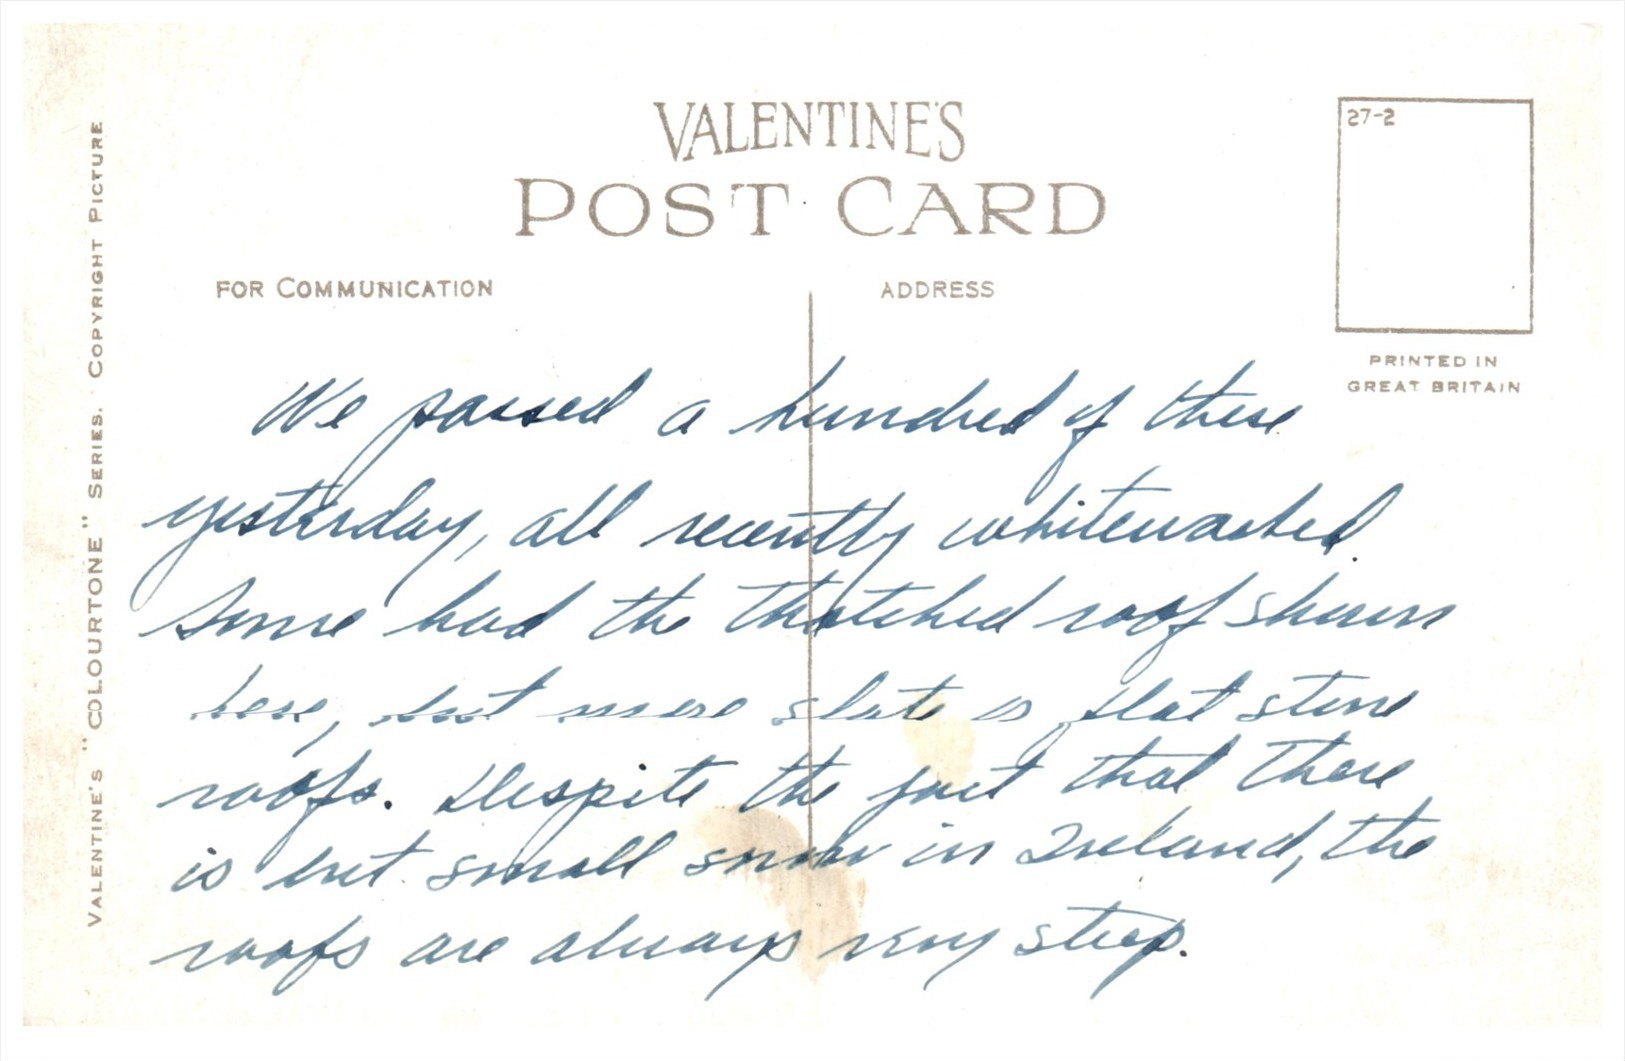 VALENTINE'S
POST CARD
27-2
FOR COMMUNICATION
ADDRESS
PRINTED IN
GREAT BRITAIN
VALENTINE'S "COLOURTONE" SERIES. COPYRIGHT PICTURE
We passed a hundred of these
yesterday, all recently whitewashed.
Some had the thatched roof shown
here, but more slate or flat stone
roofs. Despite the fact that there
is but small snow in Ireland, the
roofs are always very steep.